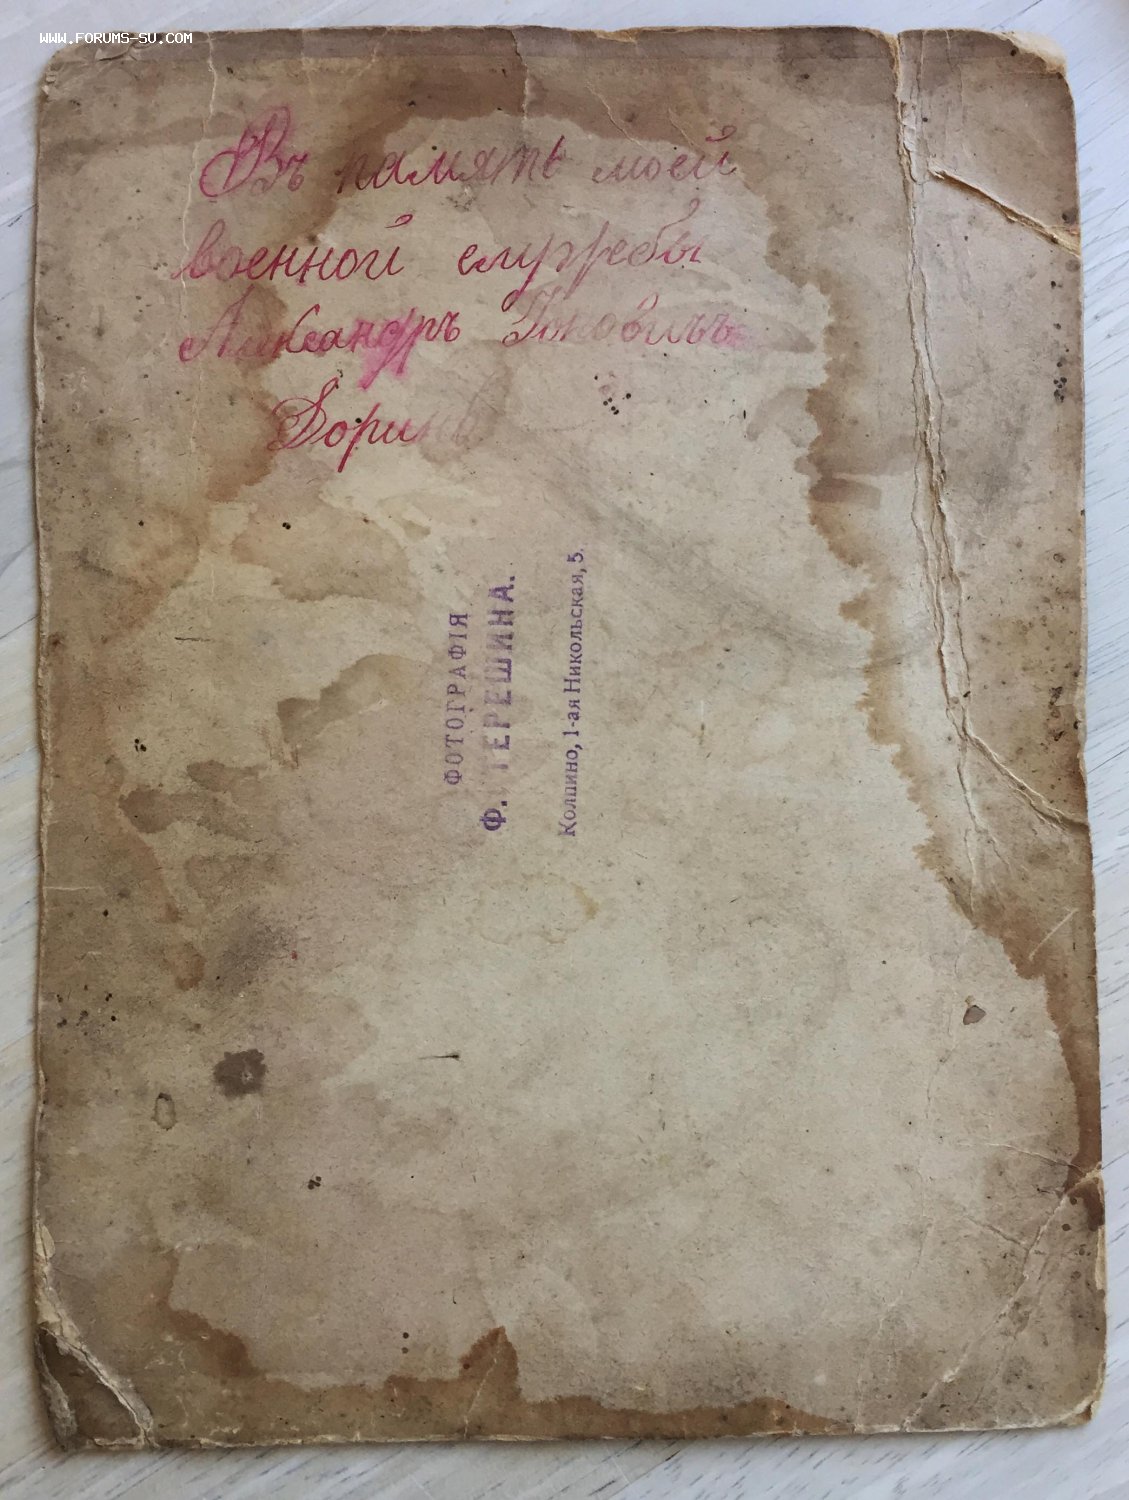 WWW.FORUMS-SU.COM
Въ память моей
военной службы
Александръ
ФОТОГРАФІЯ
Ф. ТЕРЕШИНА.
Колпино, 1-ая Никольская, 5.